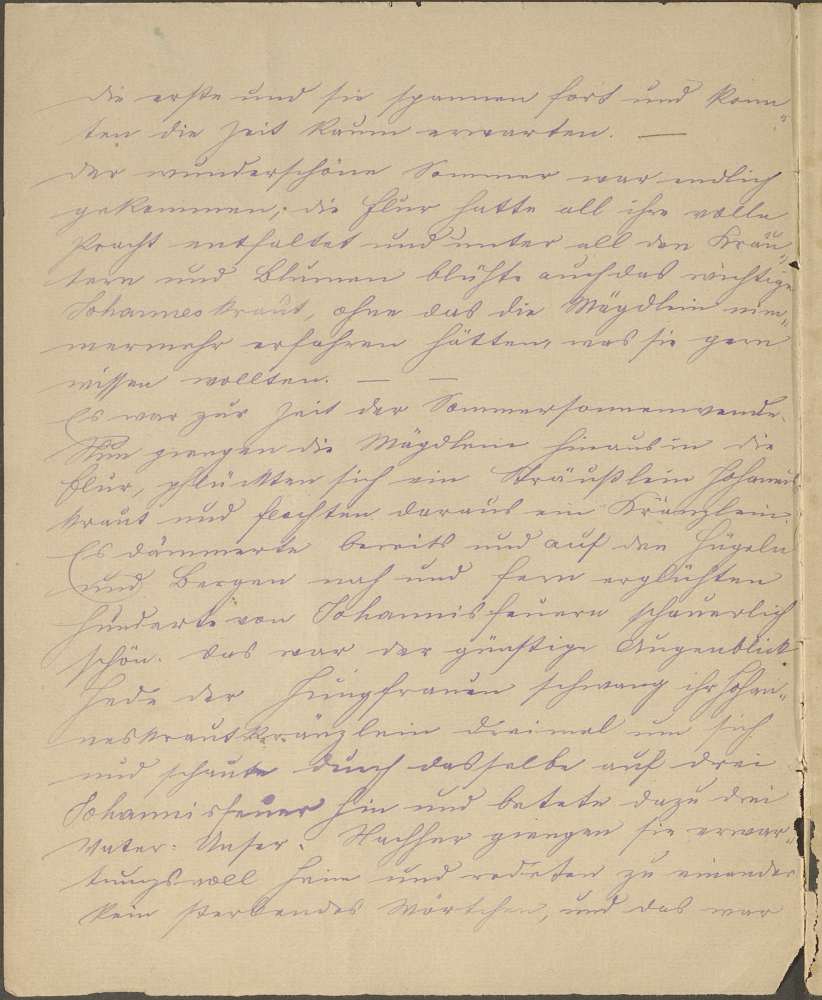 die erste und sie spannen fort und konn„
ten die Zeit kaum erwarten. —
Der wunderschöne Sommer war endlich
gekommen; die Flur hatte all ihre volle
Pracht entfaltet und unter all den Kräu„
tern und Blumen blühte auch das wichtige
Johanneskraut, ohne das die Mägdlein nim„
mermehr erfahren hätten, was sie gern
wissen wollten. — —
Es war zur Zeit der Sommersonnenwende.
Nun giengen die Mägdlein hinaus in die
Flur, pflückten sich ein Sträußlein Johannis
kraut und flochten daraus ein Kränzlein.
Es dämmerte bereits und auf den Hügeln
und Bergen nah und fern erglühten
hunderte von Johannisfeuern schauerlich
schön. Das war der günstige Augenblick.
Jede der Jungfrauen schwang ihr Johan„
neskrautkränzlein dreimal um sich
und schaute durch dasselbe auf drei
Johannisfeuer hin und betete dazu drei
Vater: Unser. Nachher giengen sie erwar„
tungsvoll heim und redeten zu einander
kein sterbendes Wörtchen, und das war